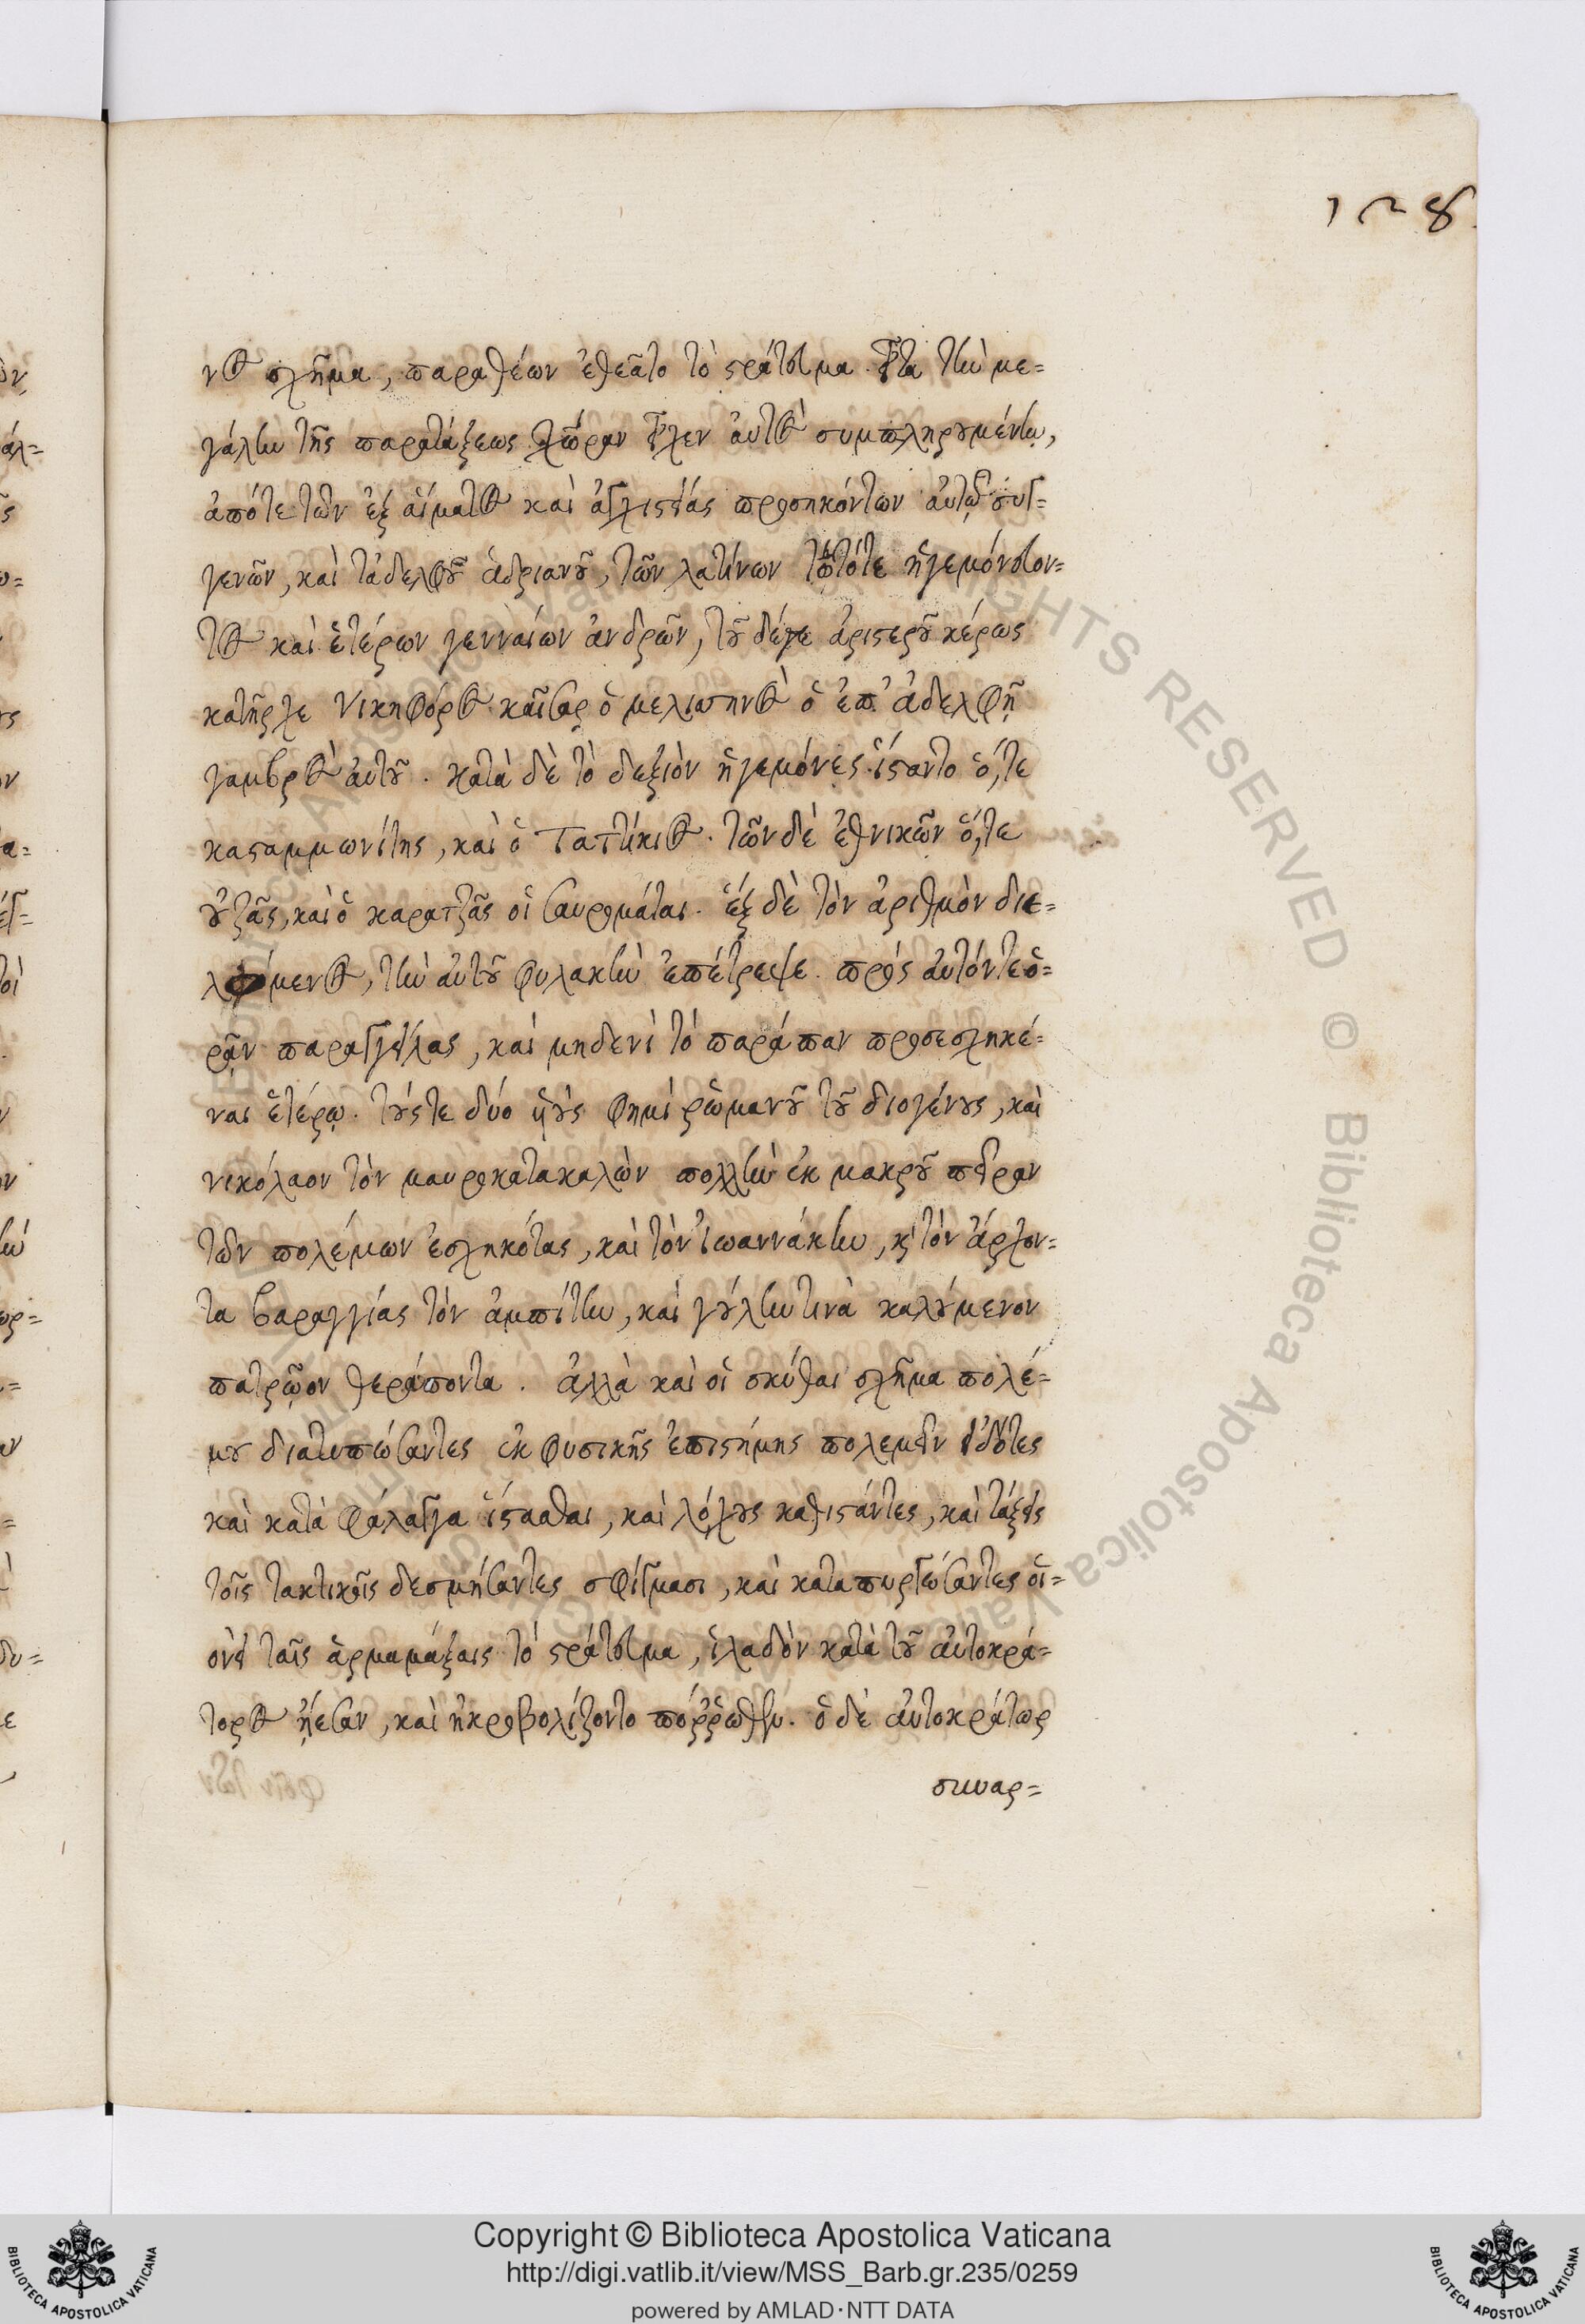 128
νος σχῆμα, παραθέων ἐθεᾶτο τὸ στράτευμα. εἶτα τὴν με=
γάλην τῆς παρατάξεως χώραν εἶχεν αὐτὸς συμπληρουμένην,
ἀπότε τῶν ἐξ αἵματος καὶ ἀγχιστείας προσηκόντων αὐτῷ συγ=
γενῶν, καὶ τἀδελφοῦ ἀδριανοῦ, τῶν λατίνων τὸ τότε ἡγεμόνευον=
τος καὶ ἑτέρων γενναίων ἀνδρῶν, τοῦ δέγε ἀριστεροῦ κέρως
κατῆρχε Νικηφόρος καῖσαρ ὁ μελισηνὸς ὁ ἐπ' ἀδελφῇ
γαμβρὸς αὐτοῦ. κατὰ δὲ τὸ δεξιὸν ἡγεμόνες ἵσταντο ὅ,τε
κασταμμωνίτης, καὶ ὁ Τατίκιος. τῶν δὲ ἐθνικῶν ὅ,τε
οὐζᾶς, καὶ ὁ καρατζᾶς οἱ σαυρομάται. ἓξ δὲ τὸν ἀριθμὸν διε=
λόμενος, τὴν αὐτοῦ φυλακὴν ἐπέτρεψε. πρὸς αὐτόντε ὁ=
ρᾷν παραγγείλας, καὶ μηδενὶ τὸ παράπαν προσεσχηκέ=
ναι ἑτέρῳ. τούς τε δύο υἱοὺς φημὶ ῥωμανοῦ τοῦ διογένους, καὶ
νικόλαον τὸν μαυροκατακαλὼν πολλὴν ἐκ μακροῦ πεῖραν
τῶν πολέμων ἐσχηκότας, καὶ τὸν ἰωαννάκην, κ τὸν ἄρχον=
τα βαραγγίας τὸν ἀμπίτην, καὶ γούλην τινὰ καλούμενον
πατρῷον θεράποντα. ἀλλὰ καὶ οἱ σκύθαι σχῆμα πολέ=
μου διατυπώσαντες ἐκ φυσικῆς ἐπιστήμης πολεμεῖν εἰδότες
καὶ κατὰ φάλαγγα ἵστασθαι, καὶ λόχους καθιστάντες, καὶ τάξεις
τοῖς τακτικοῖς δεσμήσαντες σφίγμασι, καὶ καταπυργώσαντες οἱ=
ονεὶ ταῖς ἁρμαμάξαις τὸ στράτευμα, ἰλαδὸν κατὰ τοῦ αὐτοκρά=
τορος ᾔεσαν, καὶ ἠκροβολίζοντο πόῤῥωθεν. ὁ δὲ αὐτοκράτωρ
συναρ=
Copyright © Biblioteca Apostolica Vaticana
http://digi.vatlib.it/view/MSS_Barb.gr.235/0259
powered by AMLAD·NTT DATA